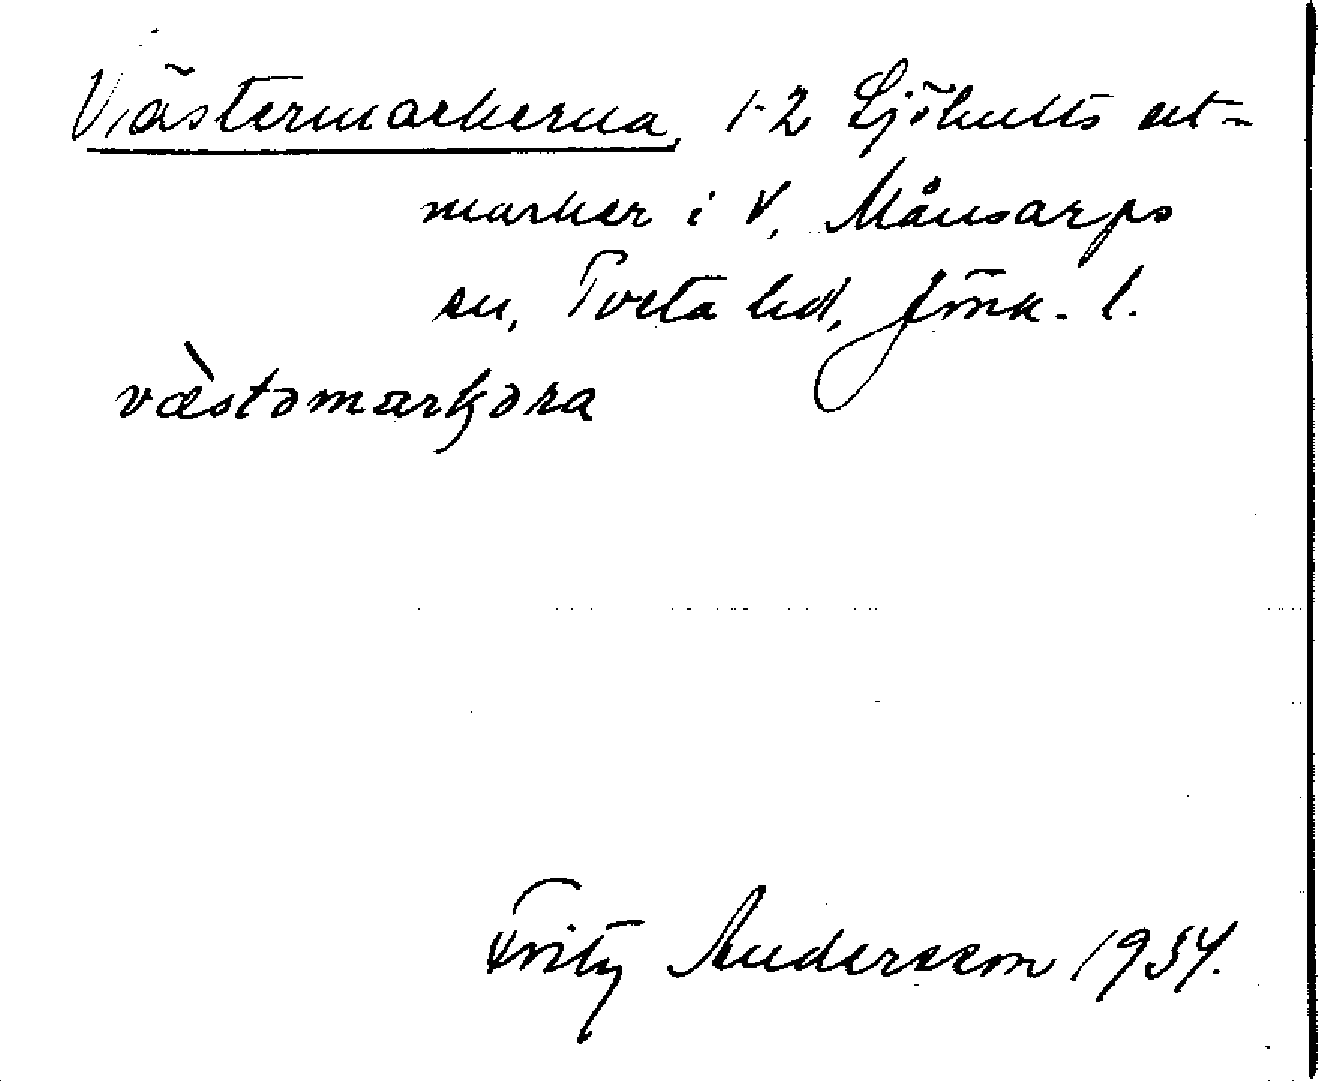 Västermarkerna, 1-2 Ljöhults ut-
marker i V, Månsarps
sn, Tveta hd, Jönk. l.
væ̀stəmarkəra
Fritz Andersson 1954.